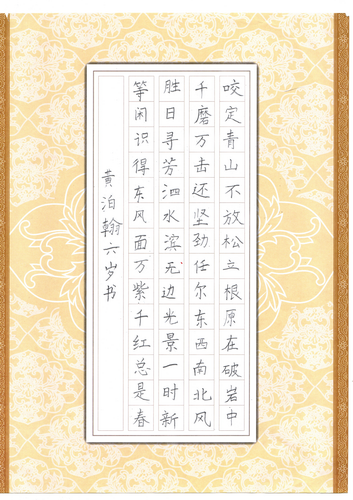 咬定青山不放松立根原在破岩中
千磨万击还坚劲任尔东西南北风
胜日寻芳泗水滨无边光景一时新
等闲识得东风面万紫千红总是春
黄泊翰六岁书